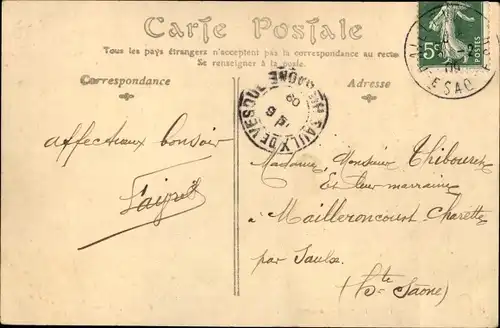 Carte Postale
Tous les pays étrangers n'acceptent pas la correspondance au recto
Se renseigner à la poste.
Correspondance
Adresse
5c
SAULX DE VESOUL
SAÔNE
affectueux bonsoir
Madame, Monsieur Thibouret
Et leur marraine
à Mailleroncourt Charette
par Saulx
(Hte Saône)